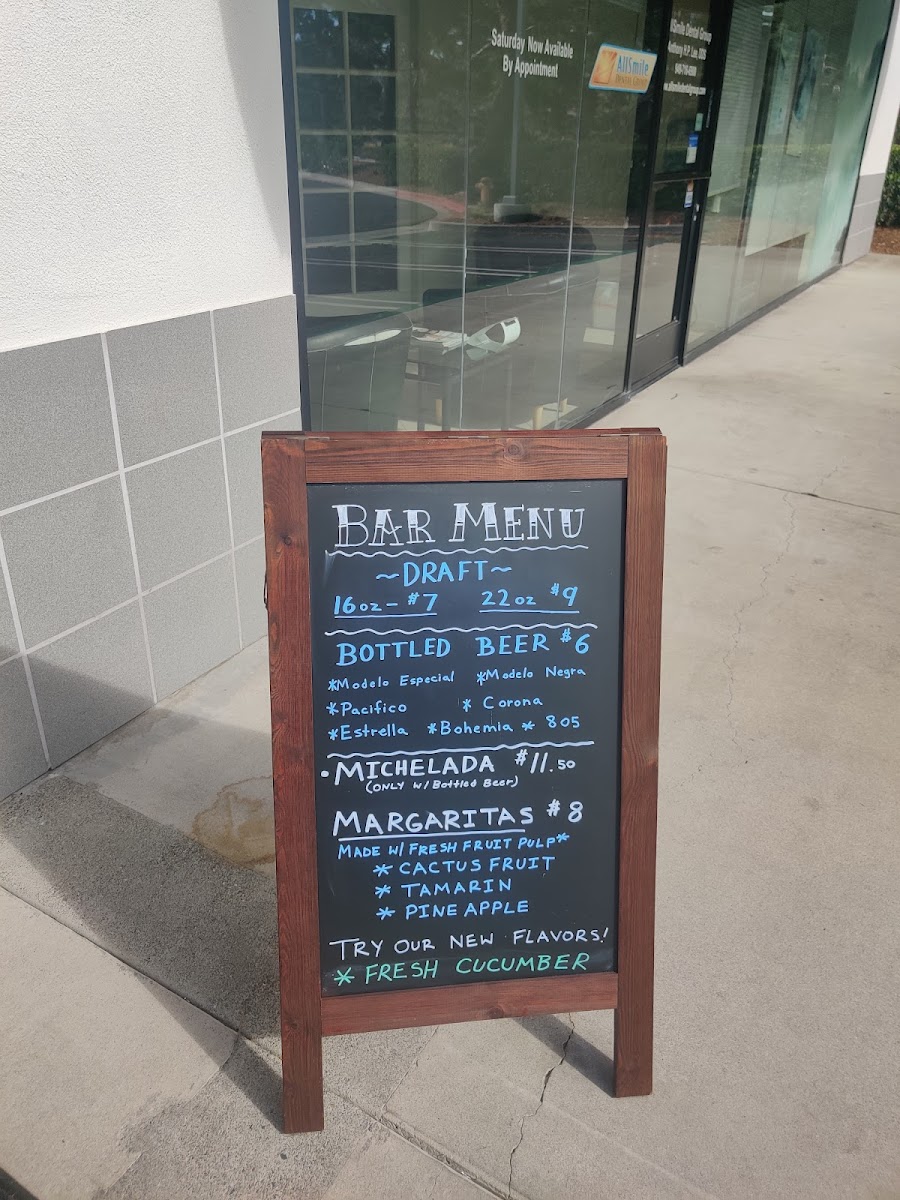 Saturday Now Available
By Appointment
AllSmile
DENTAL GROUP
AllSmile Dental Group
Anthony H.P. Lam, DDS
BAR MENU
~DRAFT~
16oz- $7 22oz $9
BOTTLED BEER $6
*Modelo Especial *Modelo Negra
*Pacifico * Corona
*Estrella *Bohemia * 805
•MICHELADA $11.50
(ONLY W/ Bottled Beer)
MARGARITAS $8
MADE W/ FRESH FRUIT PULP*
* CACTUS FRUIT
* TAMARIN
* PINEAPPLE
TRY OUR NEW FLAVORS!
* FRESH CUCUMBER